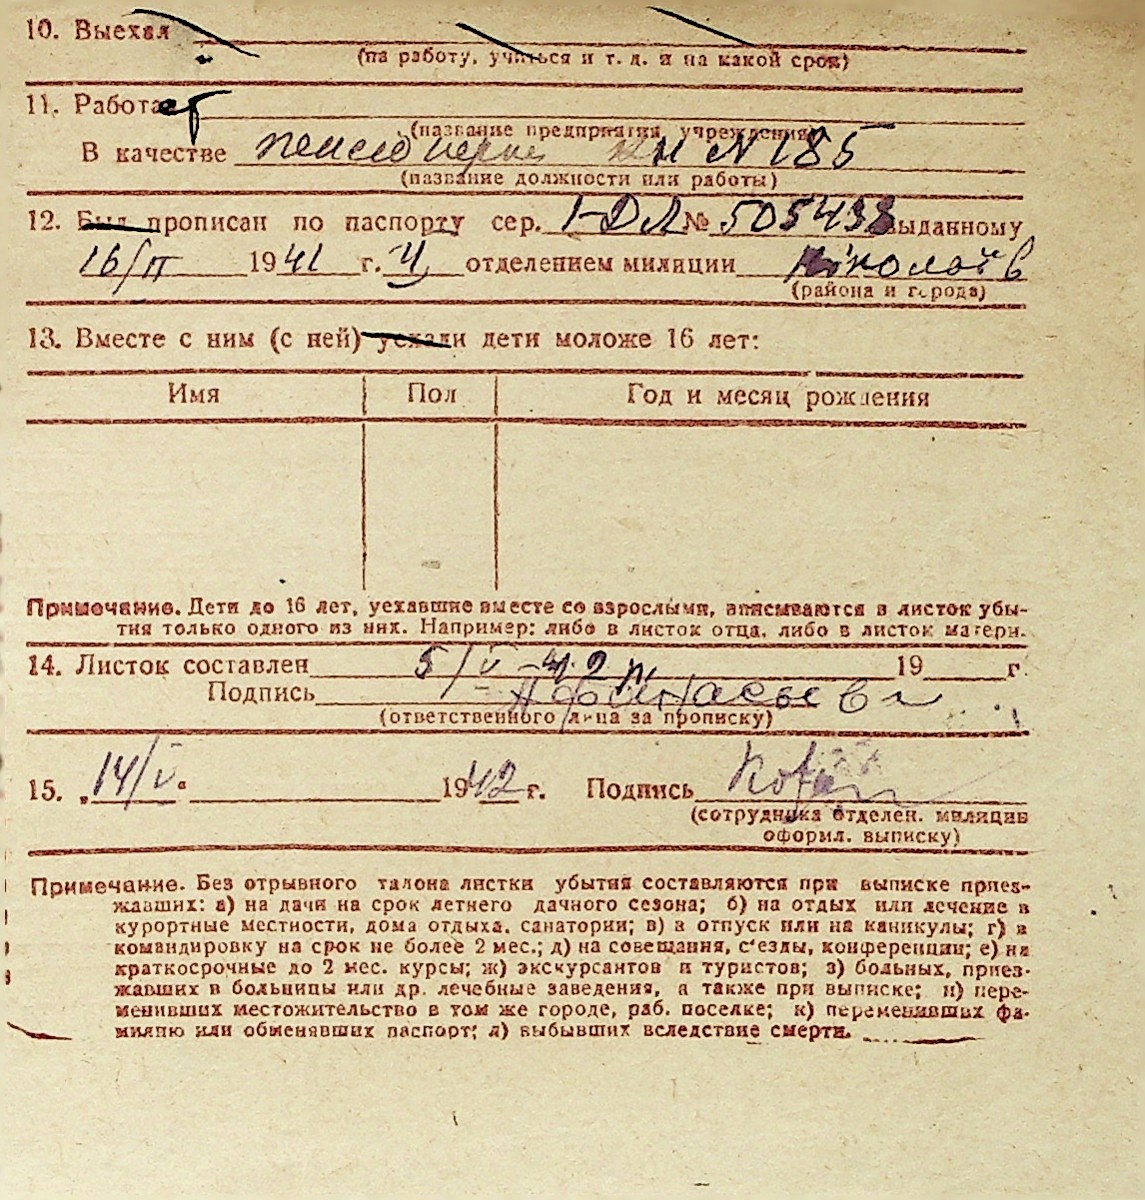 10. Выехал
(на работу, учиться и т. д. и на какой срок)
11. Работает
(название предприятия, учреждения)
В качестве пенсионерки кн N 185
(название должности или работы)
12. Был прописан по паспорту сер. I-ДЛ № 505438 выданному
16/II 1941 г. 4 отделением милиции
(района и города)
13. Вместе с ним (с ней) уехали дети моложе 16 лет:
Имя Пол Год и месяц рождения
Примечание. Дети до 16 лет, уехавшие вместе со взрослыми, вписываются в листок убы-
тия только одного из них. Например: либо в листок отца, либо в листок матери.
14. Листок составлен 5/V-42 19 г.
Подпись Афанасьева
(ответственного лица за прописку)
15. „14/V“ 1942 г. Подпись
(сотрудника отделен. милиции
оформл. выписку)
Примечание. Без отрывного талона листки убытия составляются при выписке приез-
жавших: а) на дачи на срок летнего дачного сезона; б) на отдых или лечение в
курортные местности, дома отдыха, санатории; в) в отпуск или на каникулы; г) в
командировку на срок не более 2 мес.; д) на совещания, с'езды, конференции; е) на
краткосрочные до 2 мес. курсы; ж) экскурсантов и туристов; з) больных, приез-
жавших в больницы или др. лечебные заведения, а также при выписке; и) пере-
менивших местожительство в том же городе, раб. поселке; к) переменивших фа-
милию или обменявших паспорт; л) выбывших вследствие смерти.